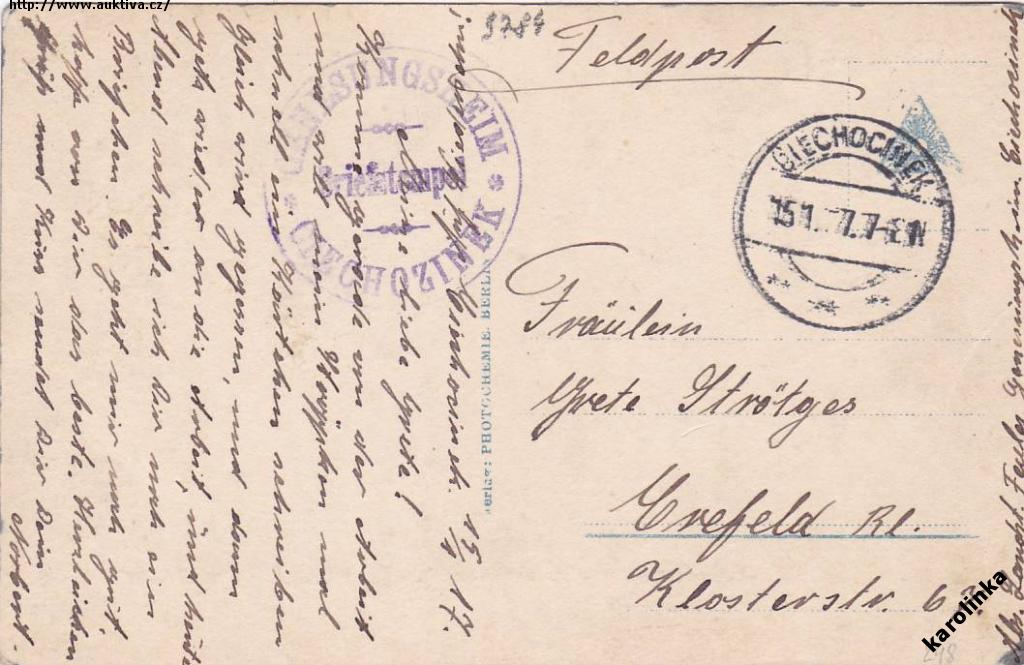 http://www.auktiva.cz/
9784
Feldpost
GENESUNGSHEIM
Briefstempel
CIECHOZINEK
CIECHOCINEK
15 1. 7. 7-8 N
Fräulein
Grete Strötges
Crefeld Rl.
Klosterstr. 6
Verlag: PHOTOCHEMIE, BERLIN
Ciechocinek. 15/1 17.
Meine liebe Grete!
Komme gerade von der Arbeit
und will Deinem mal
schnell ein Kärtchen schreiben
Gleich wird gegessen, und dann
geht wieder an die Arbeit, und heute
Abend schreibe ich Dir noch ein
Briefchen. Es geht mir noch gut,
hoffe von Dir das beste. Herzlichen
Gruß und Kuss sendet Dir Dein
Norbert
Genesungsheim Ciechocinek
karolinka